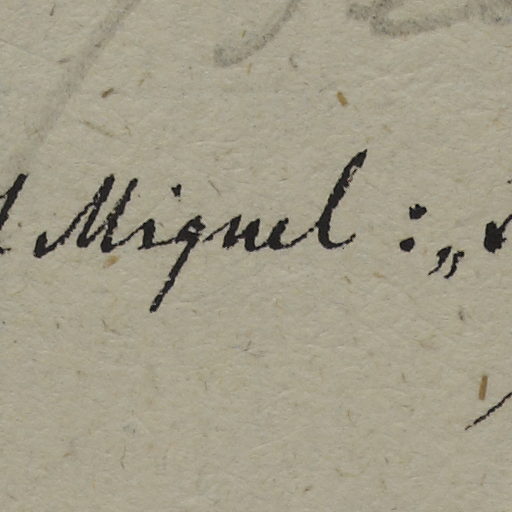 Miquel : „